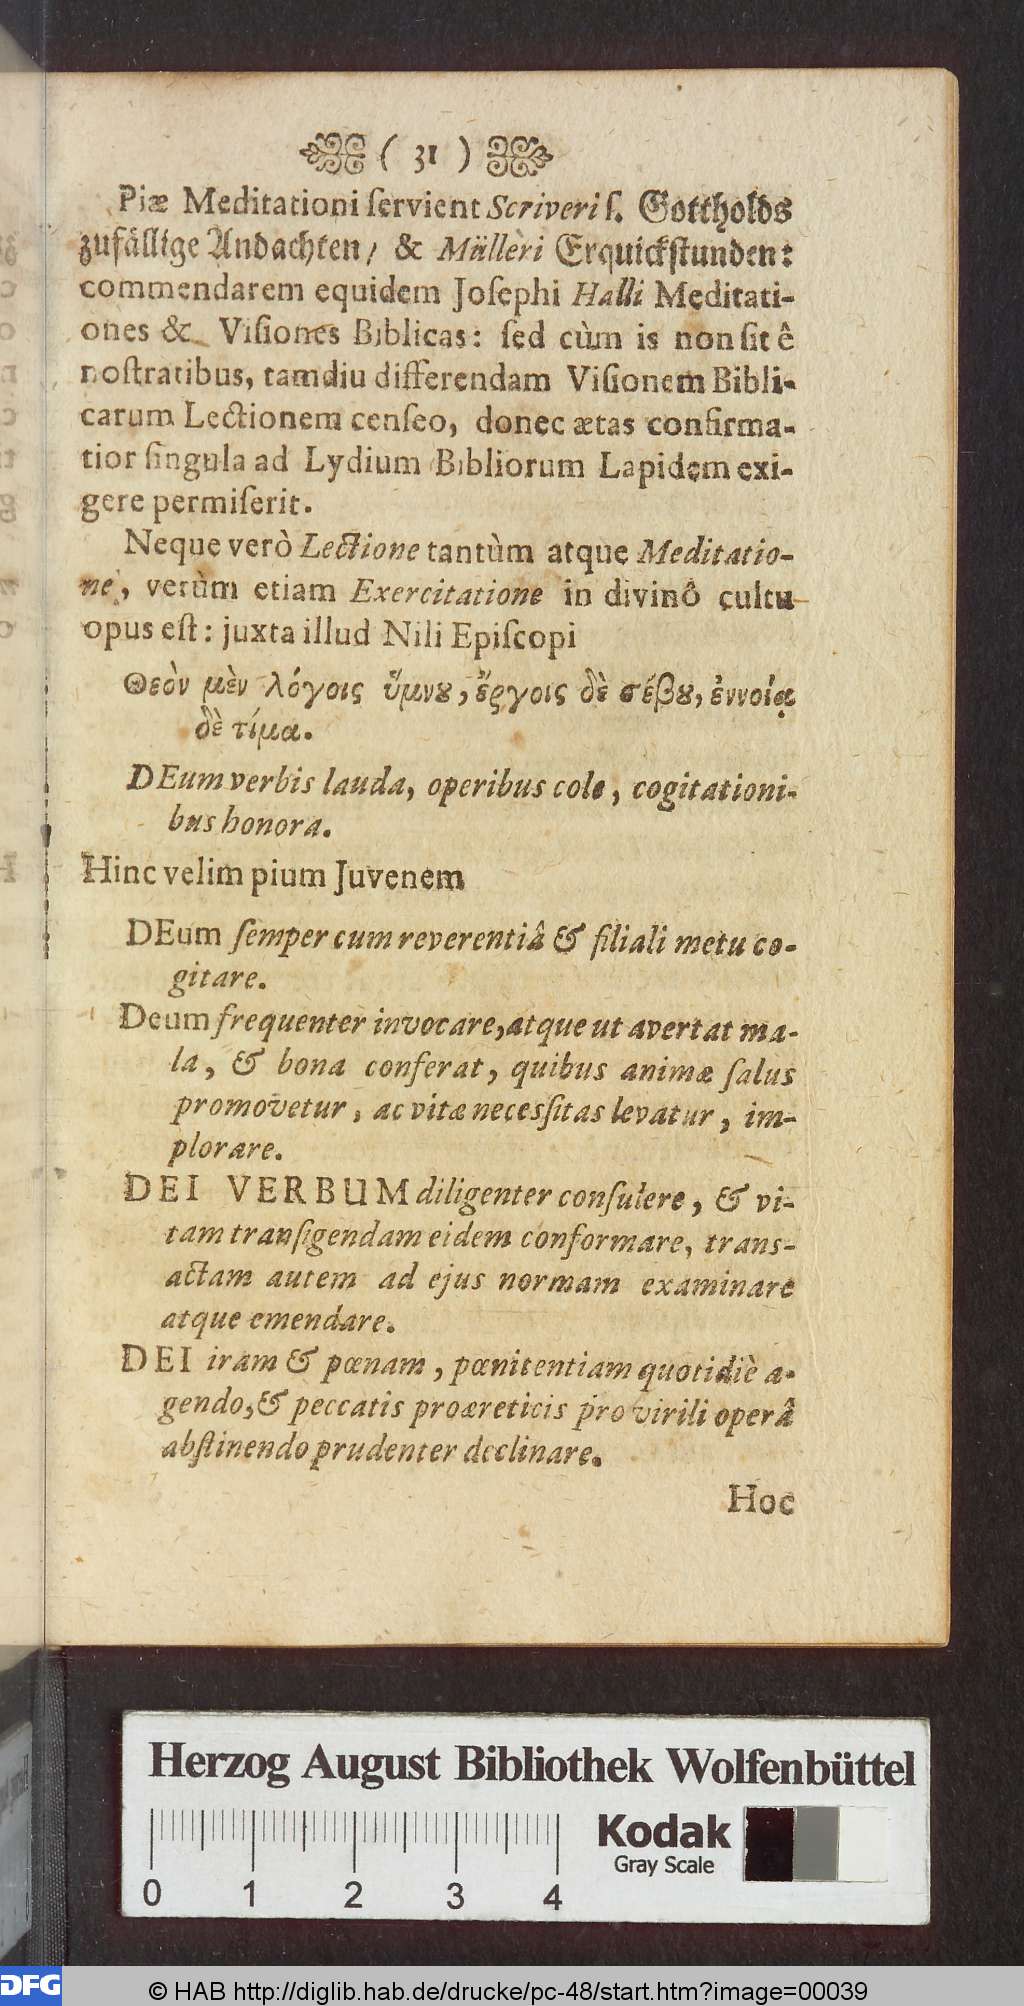 ( 31 )
Piæ Meditationi ſervient Scriveri ſ. Gottholds
zufällige Andachten / & Mülleri Erquickſtunden:
commendarem equidem Joſephi Halli Meditati-
ones & Viſiones Biblicas: ſed cùm is non ſit ê
noſtratibus, tamdiu differendam Viſionem Bibli-
carum Lectionem cenſeo, donec ætas confirma-
tior ſingula ad Lydium Bibliorum Lapidem exi-
gere permiſerit.
Neque verò Lectione tantùm atque Meditatio-
ne, verùm etiam Exercitatione in divinô cultu
opus eſt: juxta illud Nili Epiſcopi
Θεὸν μὲν λόγοις ὕμνȣ, ἔργοις δὲ σέβȣ, ἐννοίᾳ
δὲ τίμα.
DEum verbis lauda, operibus cole, cogitationi-
bus honora.
Hinc velim pium Juvenem
DEum ſemper cum reverentiâ & filiali metu co-
gitare.
Deum frequenter invocare, atque ut avertat ma-
la, & bona conferat, quibus animæ ſalus
promovetur, ac vitæ neceſſitas levatur, im-
plorare.
DEI VERBUM diligenter conſulere, & vi-
tam tranſigendam eidem conformare, trans-
actam autem ad ejus normam examinare
atque emendare.
DEI iram & pœnam, pœnitentiam quotidiè a-
gendo, & peccatis proæreticis pro virili operâ
abſtinendo prudenter declinare.
Hoc
Herzog August Bibliothek Wolfenbüttel
Kodak
Gray Scale
0 1 2 3 4
DFG
© HAB http://diglib.hab.de/drucke/pc-48/start.htm?image=00039